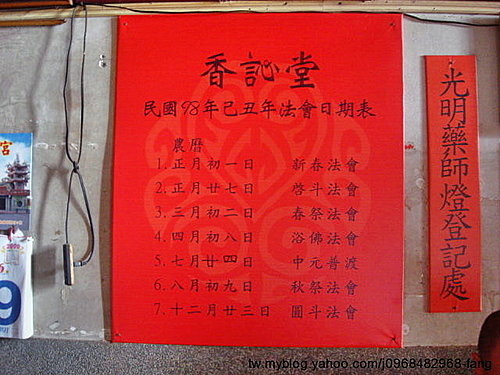 香訫堂
民國98年己丑年法會日期表
農曆
1. 正月初一日 新春法會
2. 正月廿七日 啓斗法會
3. 三月初二日 春祭法會
4. 四月初八日 浴佛法會
5. 七月廿四日 中元普渡
6. 八月初九日 秋祭法會
7. 十二月廿三日 圓斗法會
光明藥師燈登記處
宮
2009
9
tw.myblog.yahoo.com/j0968482968-fang